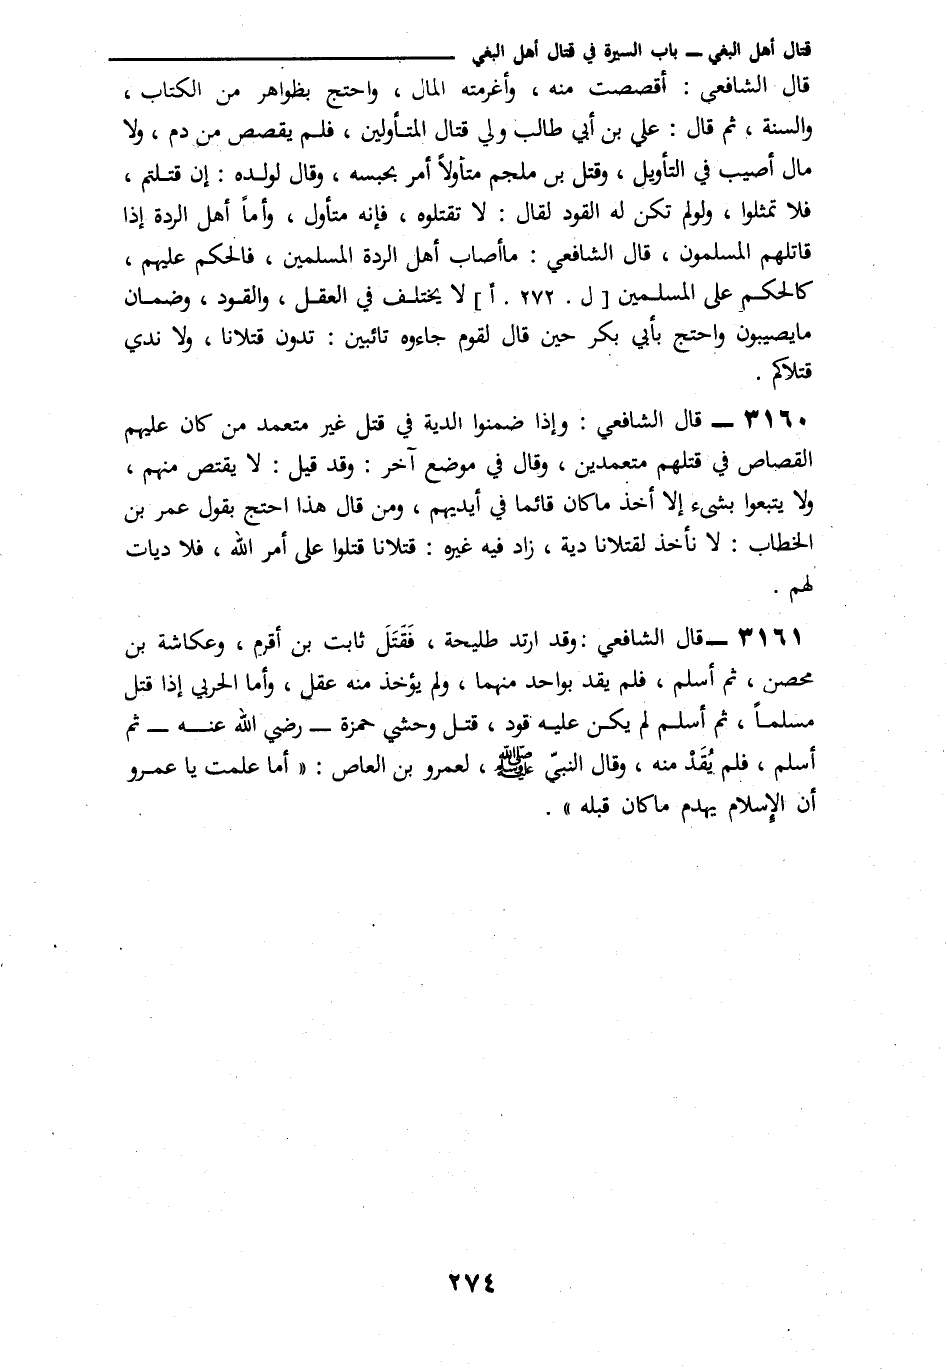 قتال أهل البغي ــ باب السيرة في قتال أهل البغي
قال الشافعي : أقصصت منه ، وأغرمته المال ، واحتج بظواهر من الكتاب ،
والسنة ، ثم قال : علي بن أبي طالب ولي قتال المتأولين ، فلم يقصص من دم ، ولا
مال أصيب في التأويل ، وقتل بن ملجم متأولاً أمر بحبسه ، وقال لولده : إن قتلتم ،
فلا تمثلوا ، ولولم تكن له القود لقال : لا تقتلوه ، فإنه متأول ، وأماً أهل الردة إذا
قاتلهم المسلمون ، قال الشافعي : ماأصاب أهل الردة المسلمين ، فالحكم عليهم ،
كالحكم على المسلمين [ ل . ٢٧٢ . أ ] لا يختلف في العقل ، والقود ، وضمان
مايصيبون واحتج بأبي بكر حين قال لقوم جاءوه تائبين : تدون قتلانا ، ولا ندي
قتلاكم .
٣١٦٠ ــ قال الشافعي : وإذا ضمنوا الدية في قتل غير متعمد من كان عليهم
القصاص في قتلهم متعمدين ، وقال في موضع آخر : وقد قيل : لا يقتص منهم ،
ولا يتبعوا بشىء إلا أخذ ماكان قائما في أيديهم ، ومن قال هذا احتج بقول عمر بن
الخطاب : لا نأخذ لقتلانا دية ، زاد فيه غيره : قتلانا قتلوا على أمر الله ، فلا ديات
لهم .
٣١٦١ ــ قال الشافعي : وقد ارتد طليحة ، فَقَتَلَ ثابت بن أقرم ، وعكاشة بن
محصن ، ثم أسلم ، فلم يقد بواحد منهما ، ولم يؤخذ منه عقل ، وأما الحربي إذا قتل
مسلماً ، ثم أسلم لم يكن عليه قود ، قتل وحشي حمزة ــ رضي الله عنه ــ ثم
أسلم ، فلم يُقَدْ منه ، وقال النبيّ ﷺ ، لعمرو بن العاص : « أما علمت يا عمرو
أن الإسلام يهدم ماكان قبله » .
٢٧٤